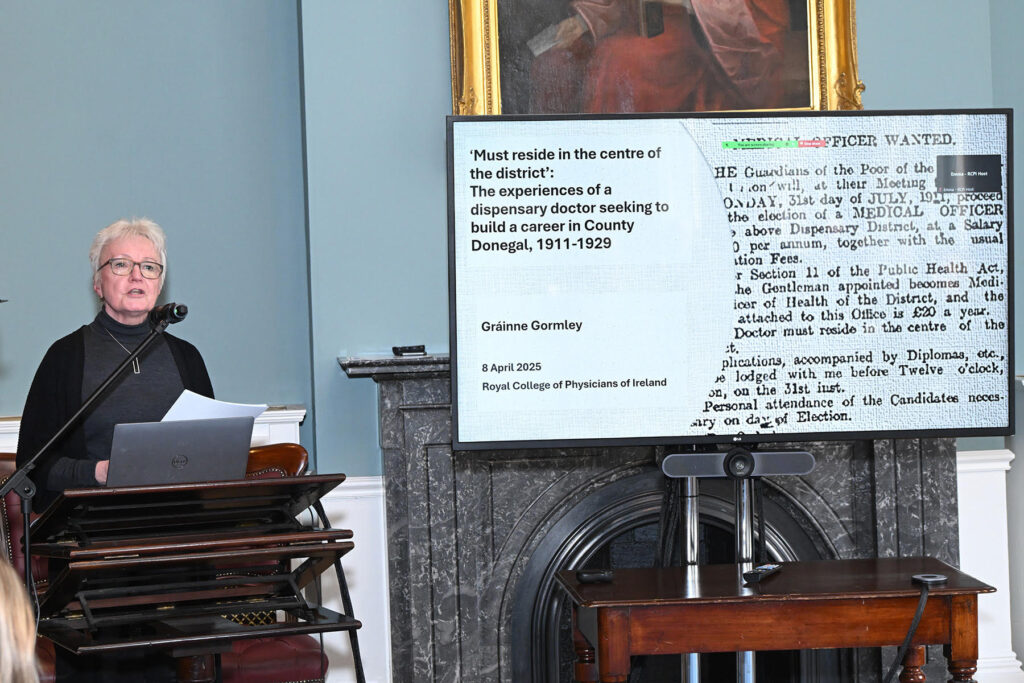 'Must reside in the centre of
the district':
The experiences of a
dispensary doctor seeking to
build a career in County
Donegal, 1911-1929
Gráinne Gormley
8 April 2025
Royal College of Physicians of Ireland
MEDICAL OFFICER WANTED.
HE Guardians of the Poor of the
will, at their Meeting
ONDAY, 31st day of JULY, 1911, proceed
the election of a MEDICAL OFFICER
above Dispensary District, at a Salary
0 per annum, together with the usual
ation Fees.
r Section 11 of the Public Health Act,
he Gentleman appointed becomes Medi-
icer of Health of the District, and the
attached to this Office is £20 a year.
Doctor must reside in the centre of the
t.
plications, accompanied by Diplomas, etc.,
e lodged with me before Twelve o'clock,
on, on the 31st inst.
Personal attendance of the Candidates neces-
ary on day of Election.
Emma - RCPI Host
Emma - RCPI Host
LG
DELL